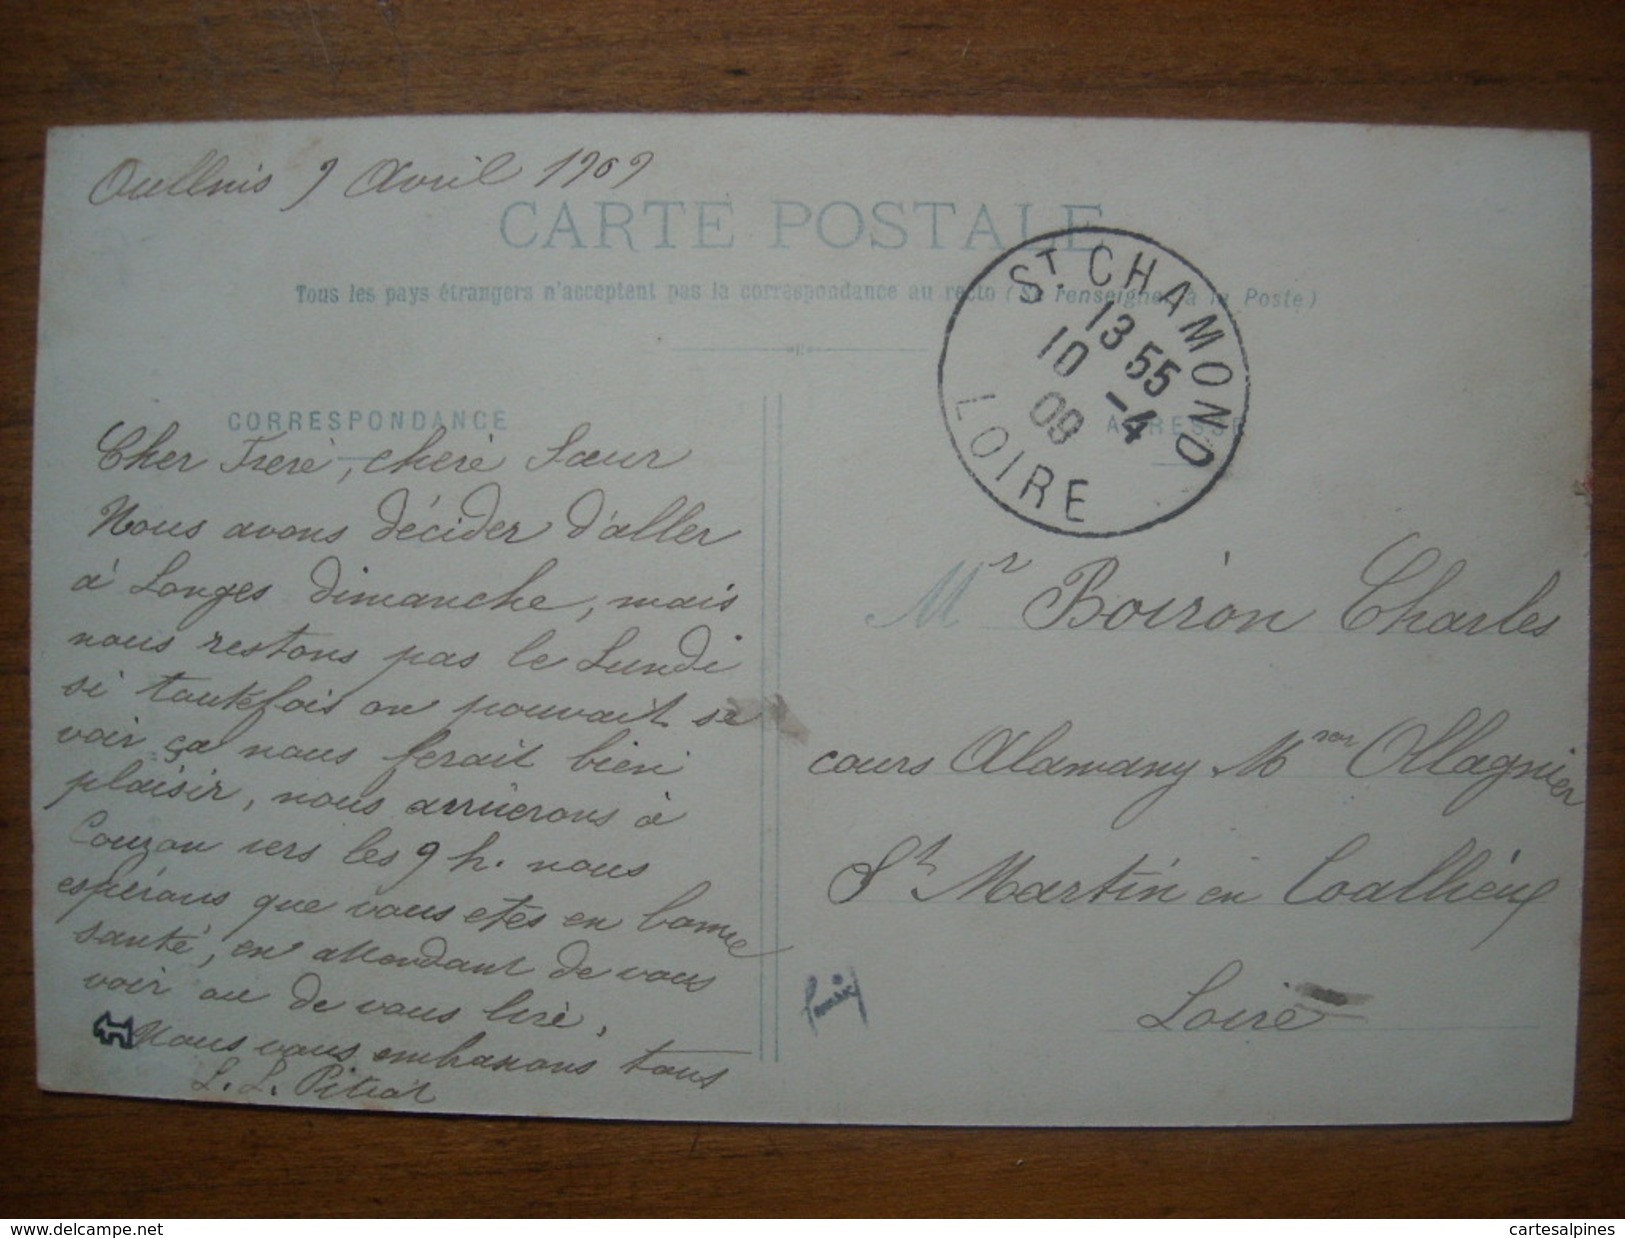 Oullnis 9 Avril 1909
CARTE POSTALE
Tous les pays étrangers n'acceptent pas la correspondance au recto (Se renseigner à la Poste)
ST CHAMOND
13 55
10 -4
09
LOIRE
CORRESPONDANCE
Cher Freré, cheré Sœur
Nous avons décider d'aller
à Longes dimanche, mais
nous restons pas le Lundi
si toutefois on pouvait se
voir ça nous ferait bien
plaisir, nous arriverons à
Couzon vers les 9 h. nous
espérons que vous etes en bonne
santé, en attendant de vous
voir ou de vous liré,
Nous vous embrassons tous
L. L. Pitiot
ADRESSE
Mr Boiron Charles
cours Alamany Mson Ollagnier
St Martin en Coallieux
Loire
www.delcampe.net
cartesalpines